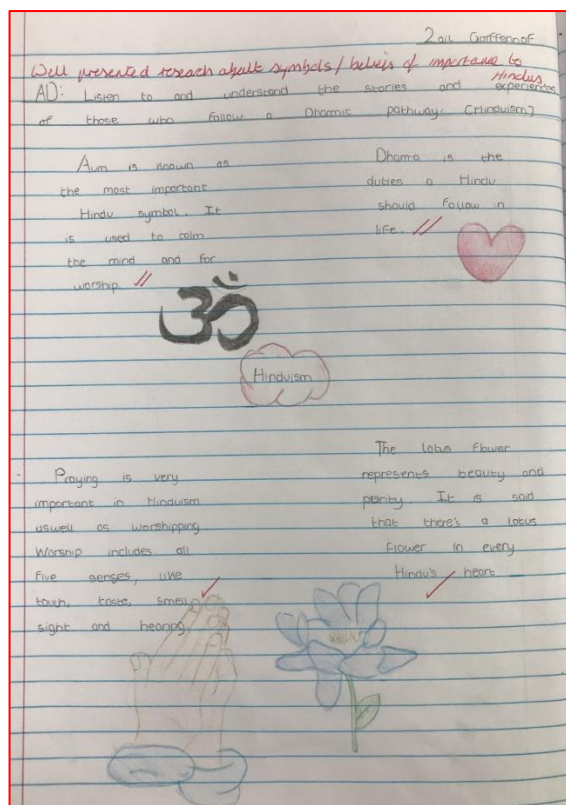 Well presented research about symbols/beliefs of importance to
Hindus
AO: Listen to and understand the stories and experiences
of those who follow a Dharmic pathway (Hinduism)
Aum is known as
the most important
Hindu symbol. It
is used to calm
the mind and for
worship.
Dharma is the
duties a Hindu
should follow in
life.
ॐ
Hinduism
Praying is very
important in Hinduism
uswell as worshipping
Worship includes all
five senses, like
touch, taste, smell
sight and hearing.
The lotus flower
represents beauty and
purity. It is said
that there's a lotus
flower in every
Hindu's heart